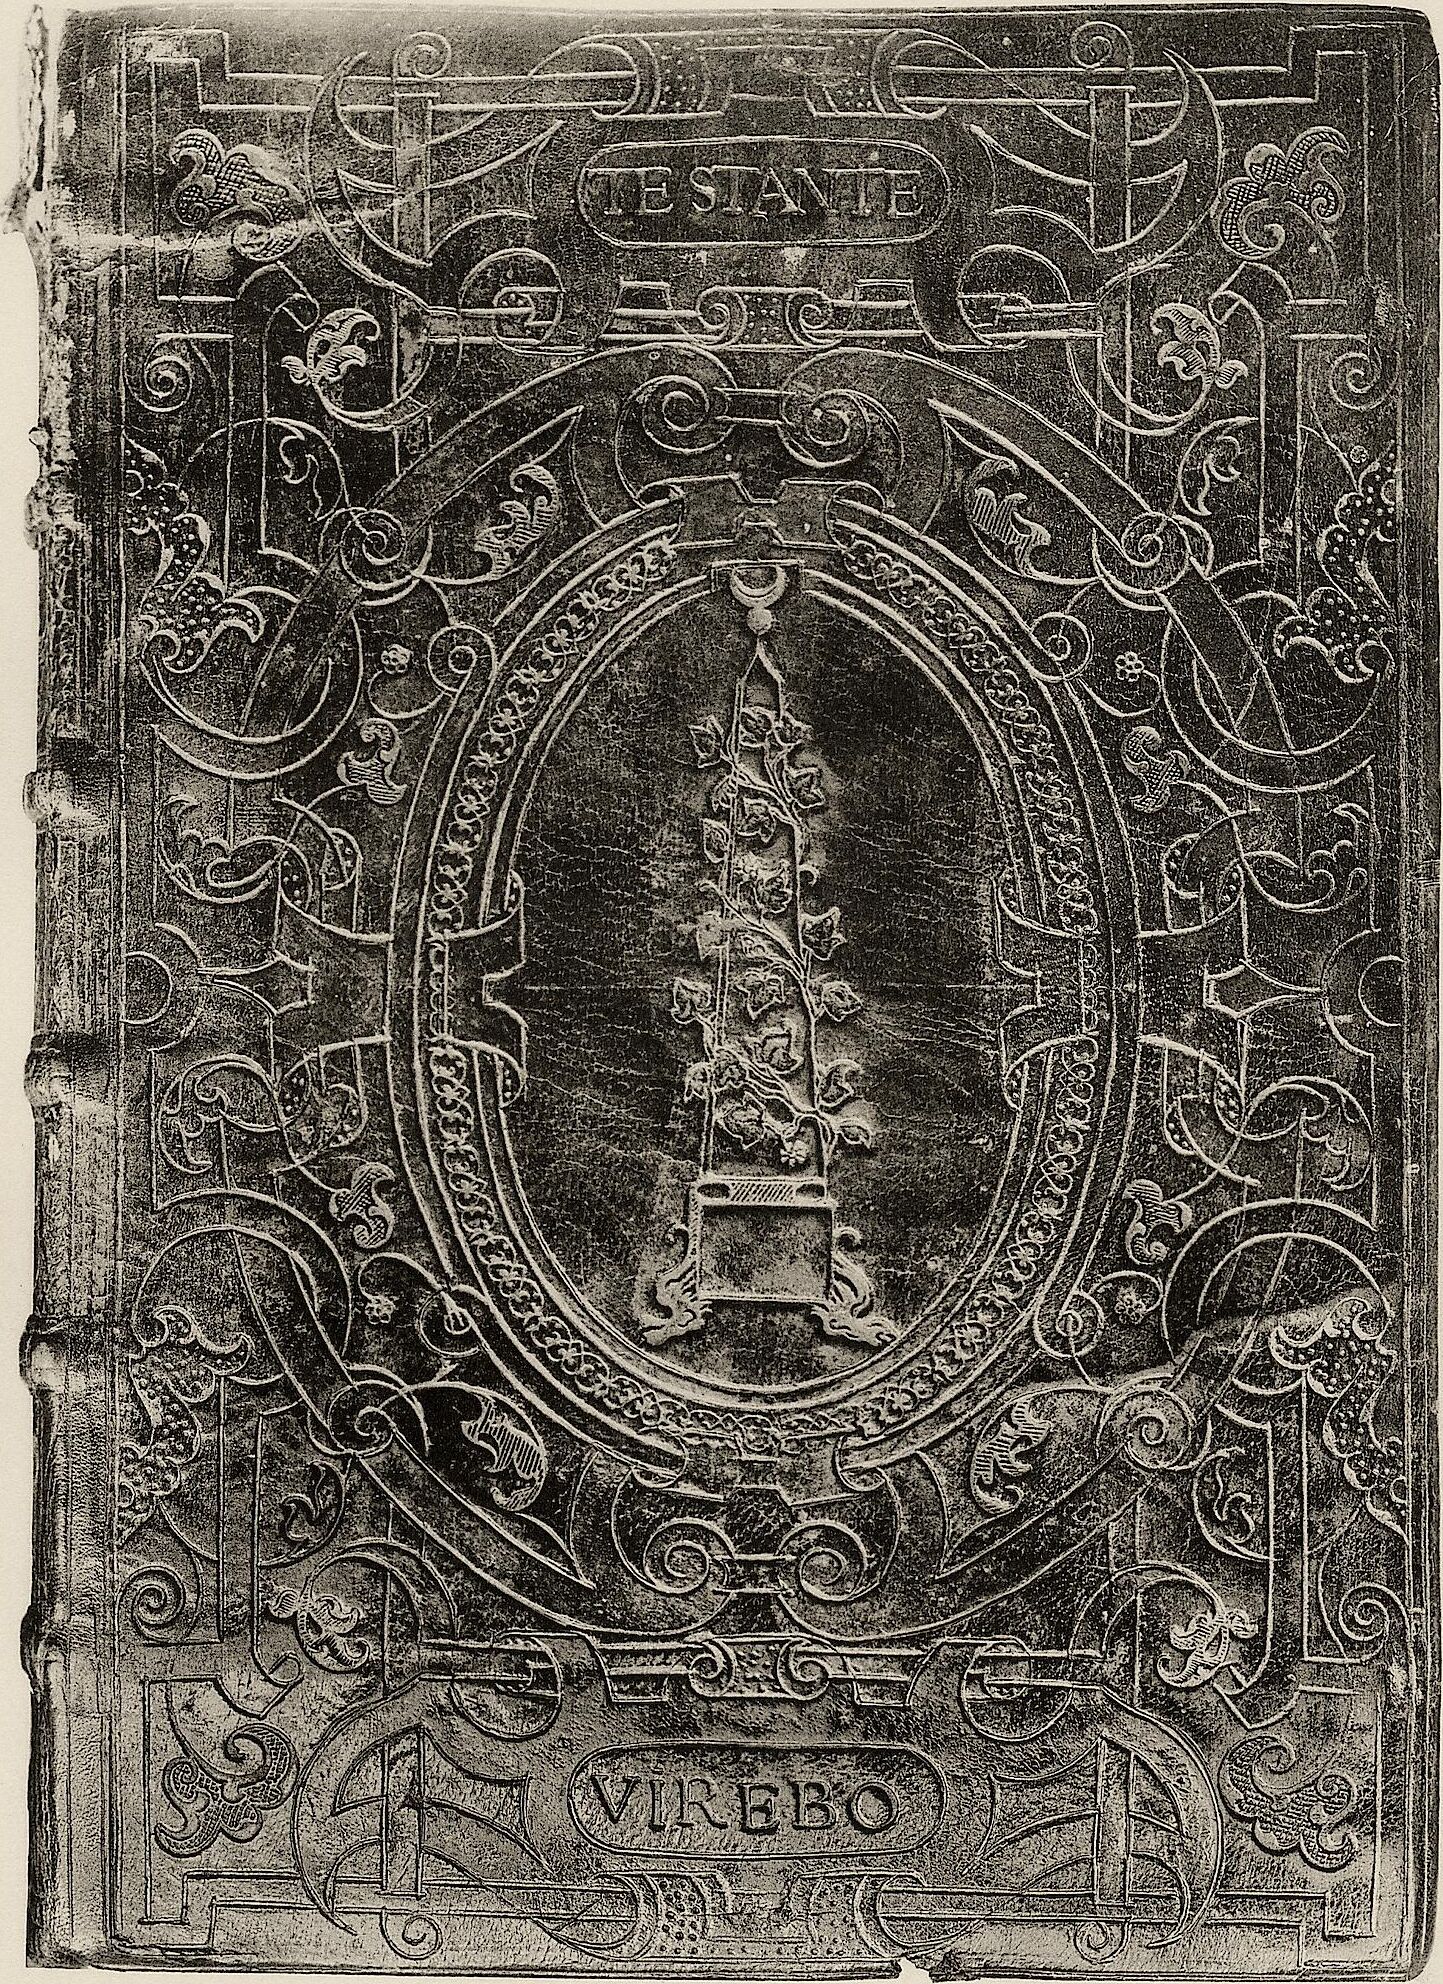 TE STANTE
VIREBO